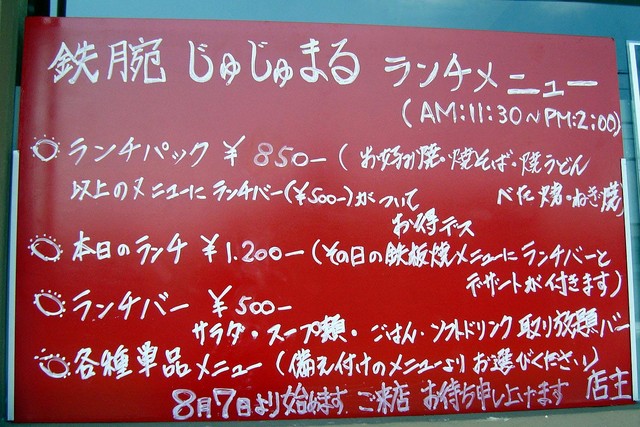 鉄腕 じゅじゅまる ランチメニュー
(AM:11:30～PM:2:00)
ランチパック ¥850-( お好み焼・焼そば・焼うどん
べた焼・ねぎ焼)
以上のメニューに ランチバー(¥500-)が ついて
お得デス
本日のランチ ¥1.200-(その日の鉄板焼メニューに ランチバーと
デザートが 付きます)
ランチバー ¥500-
サラダ・スープ類・ごはん・ソフトドリンク 取り放題バー
各種単品メニュー (備え付けのメニューより お選びください)
8月7日より始めます ご来店 お待ち申し上げます 店主